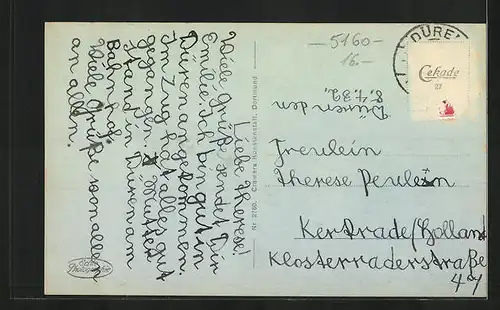 Düren den
8.4.32.
Liebe Therese!
Viele Grüße sendet Dir
Emilie. Ich bin gut in
Düren angekommen.
Im Zug hat alles gut
gegangen. Mutter
stand in Düren am
Bahnhof.
Viele Grüße von allen
an allen.
Freulein
Therese
Kerkrade/Holland
Klosterraderstraße
Nr 2760. Cramers Kunstanstalt, Dortmund
Echte
Photographie
—5160—
16.—
DÜREN
Cekade